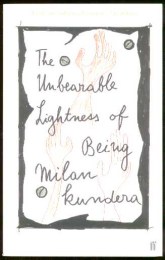 The
Unbearable
Lightness of
Being
Milan
kundera